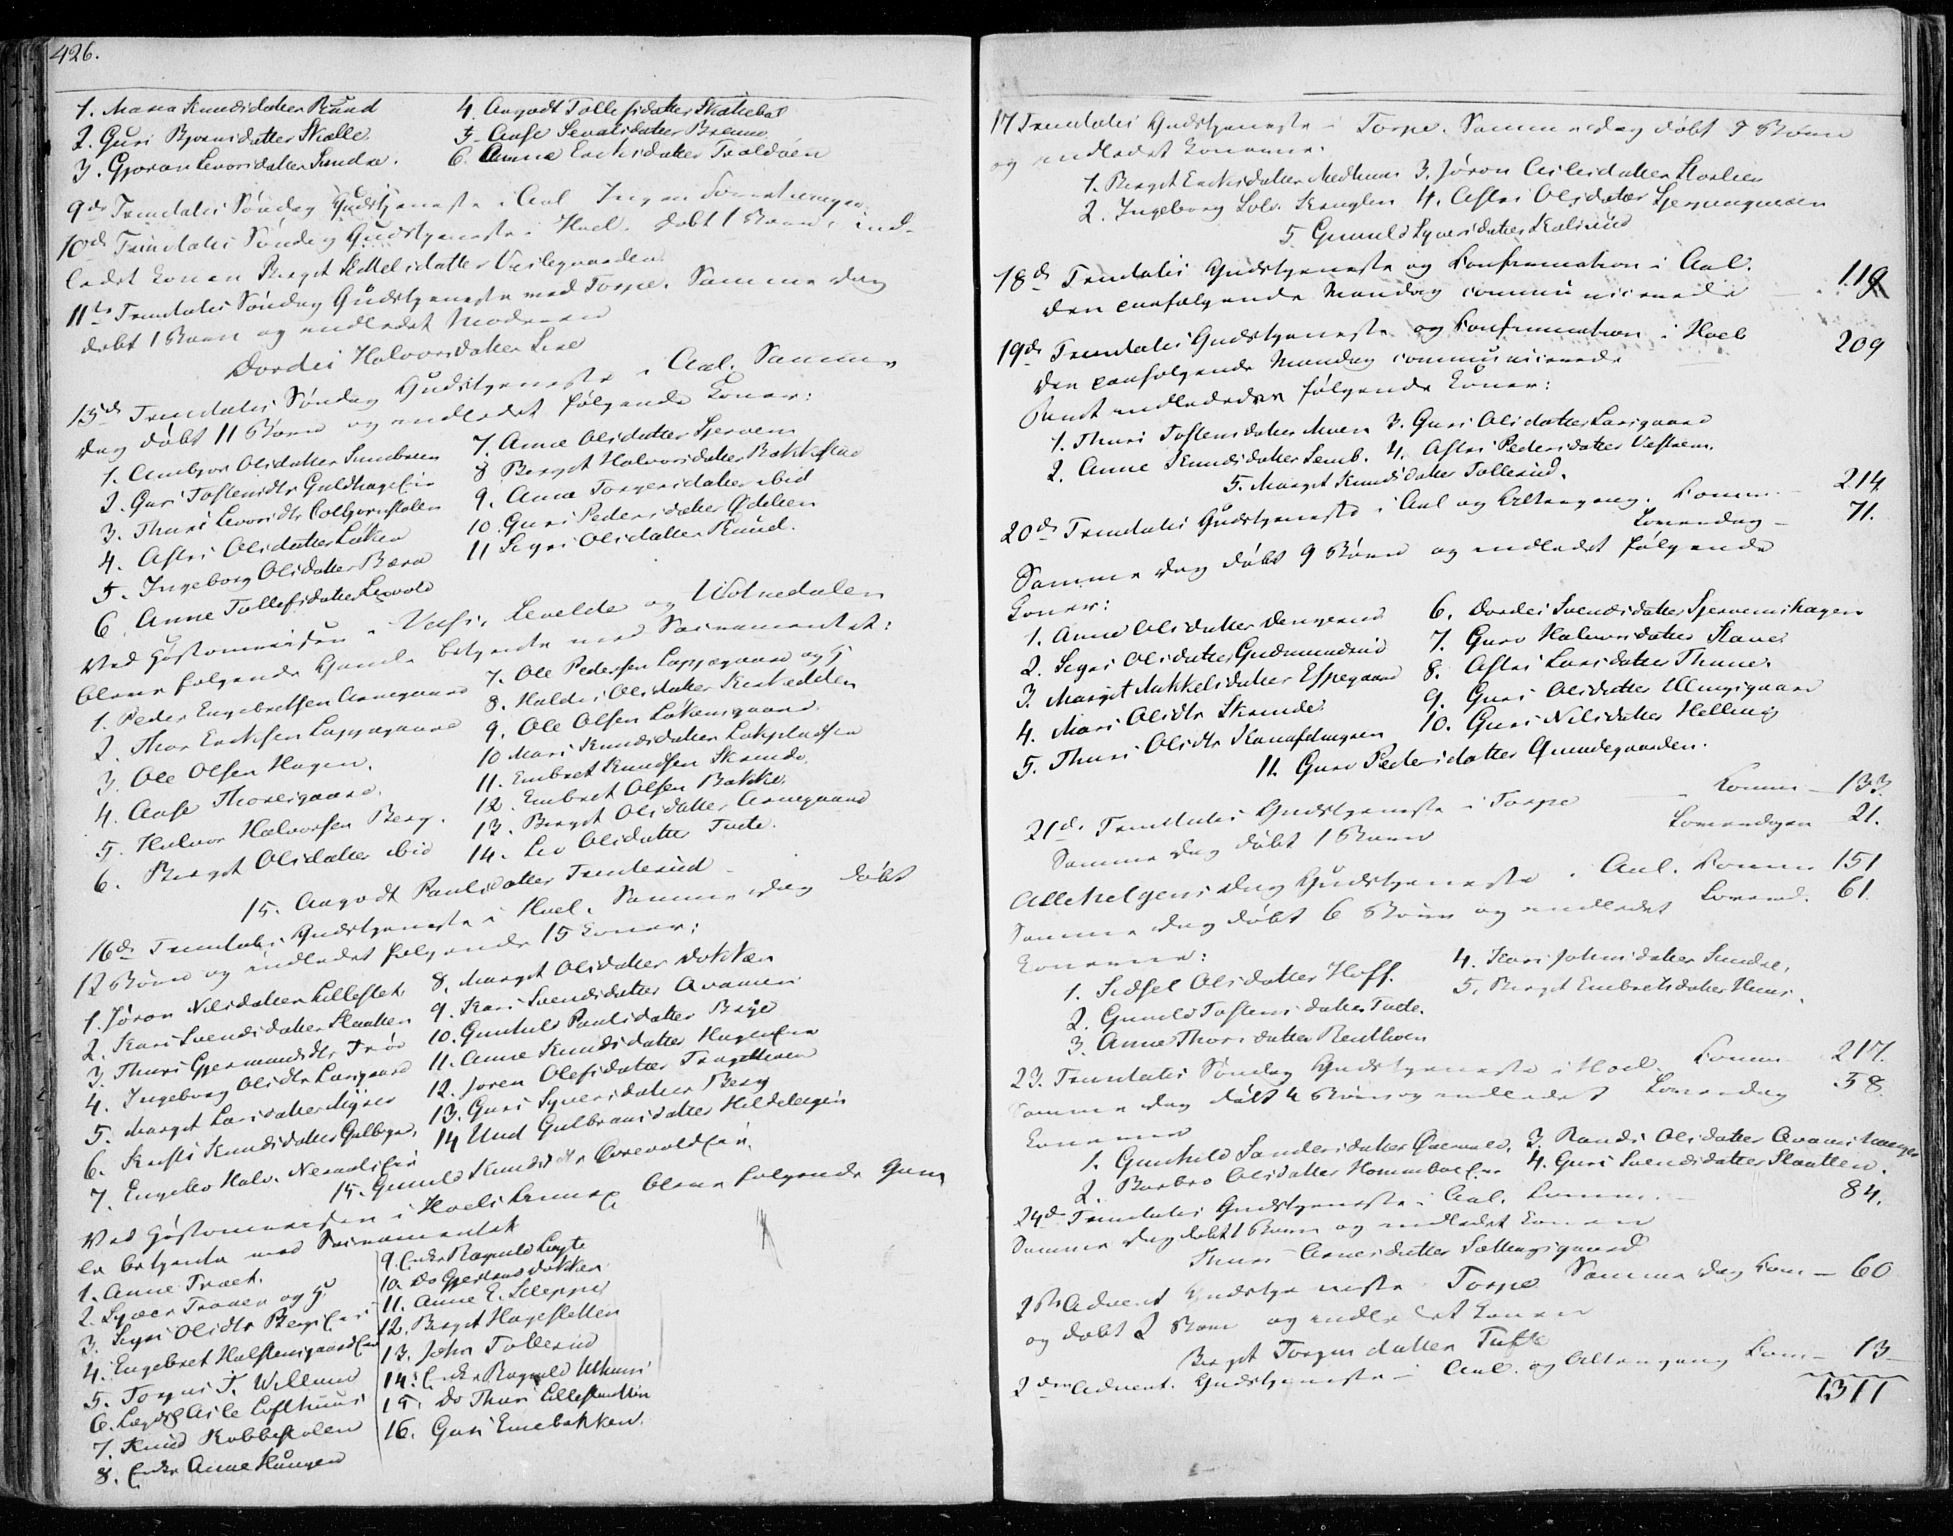 426.
1. Maria Knudsdatter Ruud
2. Guri Bjørnsdatter Skølle
3. Gjøran Levorsdatter Sundre.
4. Aagodt Tollefsdatter Skattebøl
5. Aase Sevatsdatter Brenno
6. Anne Eriksdatter Trældøen
9de Trinitatis Søndag Gudstjeneste i Aal Ingen Forretninger
10de Trinitatis Søndag Gudstjeneste i Hoel. døbt 1 Barn, ind-
ledet Konen Birgit Kittelsdatter Villegaarden
11te Trinitatis Søndag Gudstjeneste ved Torpe. Samme dag
døbt 1 Barn og indledet Moderen
Dordei Halvorsdatter Lise
15de Trinitatis Søndag Gudstjeneste i Aal. Samme
dag døbt 11 Børn og indledet følgende Koner:
1. Ambjør Olsdatter Sundbrein
2. Guri Tostensdtr Guldhagen Eie
3. Thuri Levorsdtr Golbjørnstølen
4. Astri Olsdatter Løken
5. Ingeborg Olsdatter Bæra
6. Anne Tollefsdatter Lovold
7. Anne Olsdatter Sjerven
8 Birgit Halvorsdatter Bakkestad
9. Anne Torgersdatter ibid
10. Guri Pedersdatter Ødelien
11 Sigri Olsdatter Ruud.
Ved Høstomreisen i Vats, Leveld og Votnedalen
bleve følgende Gamle betjente med Sacramentet:
1. Peder Engebretsen Arnegaard
2. Thor Eriksen Lappegaard
3. Ole Olsen Hagen.
4. Aase Thoresgaard.
5. Halvor Halvorsen Berg.
6. Birgit Olsdatter ibid
7. Ole Pedersen Lappegaard og H
8. Haldis Olsdatter
9. Ole Olsen Løkensgaard
10 Mari Knudsdatter Løkpladsen
11. Embret Knudsen Skrinde.
12. Embret Olsen Bakke.
13. Birgit Olsdatter Arnegaard
14. Liv Olsdatter Tufte.
15. Aagodt Paulsdatter Trintrud
16de Trinitatis Gudstjeneste i Hoel. Samme dag døbt
12 Børn og indledet følgende 15 Koner:
1. Jøron Nilsdatter Lilleslet
2. Kari Svendsdatter Slaatten
3. Thuri Gjermundsdtr Trøo
4. Ingeborg Olsdtr Larsgaard
5. Margit Larsdatter
6. Kristi Knudsdatter
7. Engebor Halv. Eie
8. Margit Olsdatter Dokken
9. Kari Svendsdatter Aaramen
10. Gunhild Paulsdatter Brye
11. Anne Knudsdatter Hagen Eie
12. Joren Olefsdatter
13. Guri Syversdatter Berg
14 Und Gulbrandsdatter Hildelengen
15. Gunild Knudsdtr Eie.
Ved Høstomreisen i Hoels bleve følgende Gam
le betjente med Sacramentet
1. Anne Træet.
2. Syver Traaen og H.
3. Sigri Olsdtr Berg Eie
4. Engebret Halstensgaard Eie
5. Torgus T. Willand
6. Lægdsl Asle Lofthuus
7. Knud Kobbestølen
8. Enke Anne Haugen
9. Enke Ragnild Lægte
10. Do Gjertrud Dokken
11. Anne E. Sleppen
12. Birgit Hageslet
13. John Tollerud
14. Enke Ragnild Uthuus
15. Do Thuri Lilleslaatten
16. Guri Einebakken.
17 Trinitatis Gudstjeneste i Torpe. Samme dag døbt 9 Børn
og indledet Konerne:
1. Birgit Eriksdatter Medhuus
2. Ingeborg Solv.
3. Jøron Aslesdatter Storlien
4. Astri Olsdatter
5. Gunild Syversdatter Kalsrud
18de Trinitatis Gudstjeneste og Confirmation i Aal.
Den paafølgende Mandag communicerede — 119
19de Trinitatis Gudstjeneste og Confirmation i Hoel
den paafølgende Mandag communicerede 209
Samt indlededes følgende Koner:
1. Thuri Tostensdatter Moen
2. Anne Knudsdatter Semb.
3. Guri Olsdatter Larsgaard
4. Astri Pedersdatter Vestrem.
5. Margit Knudsdatter Tollerud.
20de Trinitatis Gudstjeneste i Aal og Altergang. Komm. — 214
Løverdag — 71.
Samme dag døbt 9 Børn og indledet følgende
Koner:
1. Anne Olsdatter Dengerud
2. Sigri Olsdatter Gudmundsrud
3. Margit Mikkelsdatter Espegaard
4. Mari Olsdtr Skrinde
5. Thuri Olsdtr
6. Dordei Svendsdatter Sjervenshagen
7. Guro Halvorsdatter Slaae
8. Astri Larsdatter Thune
9. Guri Olsdatter Ellingsgaard
10. Guri Nilsdatter Helling
11. Guro Pedersdatter Grindegaarden.
21de Trinitatis Gudstjeneste i Torpe Komm. — 133
Samme dag døbt 1 Barn Løverdagen 21.
Allehelgens dag Gudstjeneste i Aal. Komm. 151
Samme dag døbt 6 Børn og indledet Løverd. 61
Konerne:
1. Sidsel Olsdatter Hoff.
2. Gunild Tostensdatter Tufte.
3. Anne Thorsdatter
4. Kari Johnsdatter Sundre.
5. Birgit Embretsdatter Huus.
23. Trinitatis Søndag Gudstjeneste i Hoel. Komm. 217.
Samme dag døbt 4 Børn og indledet Løverdag 58.
Konerne
1. Gunhild Sandersdatter
2. Barbro Olsdatter Hammerbøe Eie
3. Randi Olsdatter
4. Guri Svendsdatter Slaatten.
24de Trinitatis Gudstjeneste i Aal. Komm. — 84.
Samme dag døbt 1 Barn og indledet Konen
Thuri Arnesdatter Sættingsgaard
1ste Advent Gudstjeneste i Torpe Samme dag Kom — 60
og døbt 2 Børn og indledet Konen
Birgit Torgersdatter Tufte
2den Advent. Gudstjeneste i Aal. og Altergang Kom — 13
1311